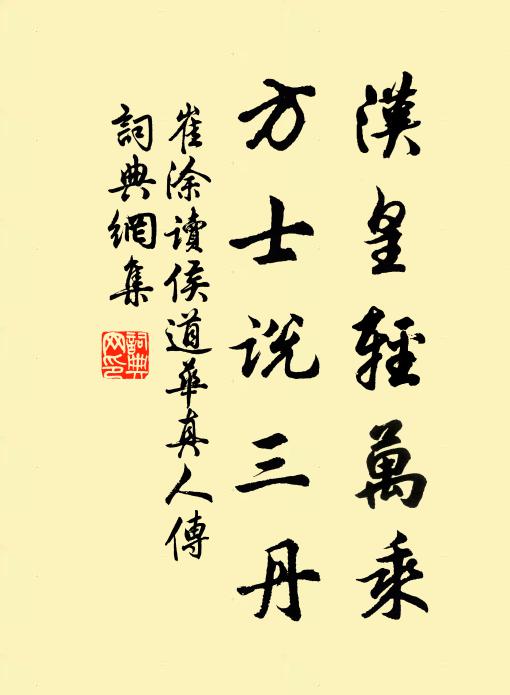 漢皇輕萬乘
方士説三丹
崔涂讀侯道華真人傳
詞典網集
詞典
网印